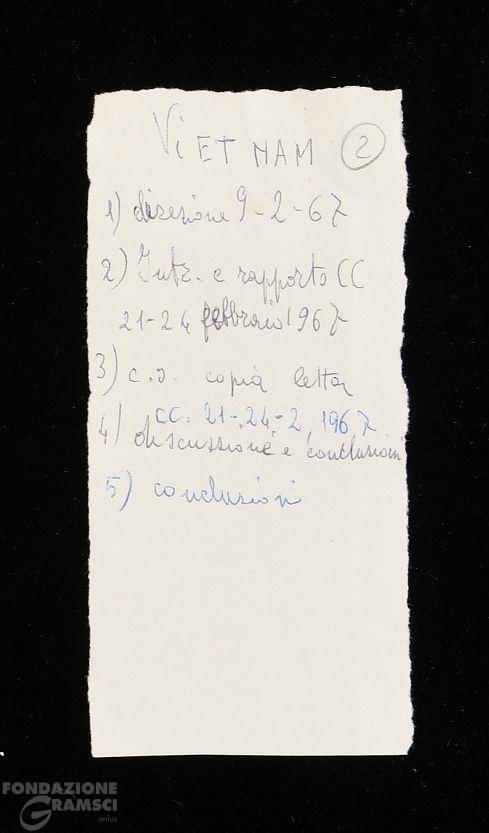 VIET NAM 2
1) direzione 9-2-67
2) Intr. e rapporto CC
21-24 febbraio 1967
3) c.s. copia letta
CC. 21-24-2, 1967
4) discussione e conclusioni
5) conclusioni
FONDAZIONE
GRAMSCI
onlus